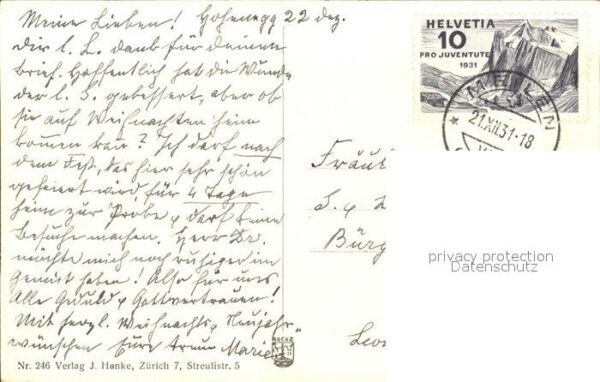 Meine Lieben! Hohenegg 22 Dez.
Dir l. L. dank für deinen
Brief. Hoffentlich hat die Wunde
der l. S. gebessert, aber ob
sie auf Weihnachten heim
kommen kann? Ich darf nach
dem Fest, das hier sehr schön
gefeiert wird, für 4 Tage
heim zur Probe & darf keine
Besuche machen. Herr Dr.
möchte mich noch ruhiger im
Gemüt haben! Also für uns
Alle Geduld & Gottvertrauen!
Mit herzl. Weihnachts & Neujahr-
wünschen Eure treue Marie
Nr. 246 Verlag J. Honke, Zürich 7, Streulistr. 5
HELVETIA
10
PRO JUVENTUTE
1931
MEILEN
21.XII.31-18
Fräul
S. &
Bürg
privacy protection
Datenschutz